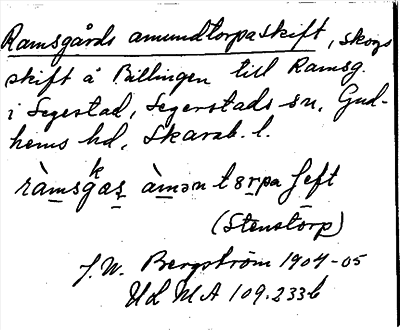 Ramsgårds amundtorpaskift, skogs
skift å Billingen till Ramsg.
i Segestad, Segerstads sn, Gud-
hems hd, Skarab. l.
k
ràmsgas àmən tɜrpa ʃeft
(Stenstorp)
J. W. Bergström 1904-05
ULMA 109.233 b